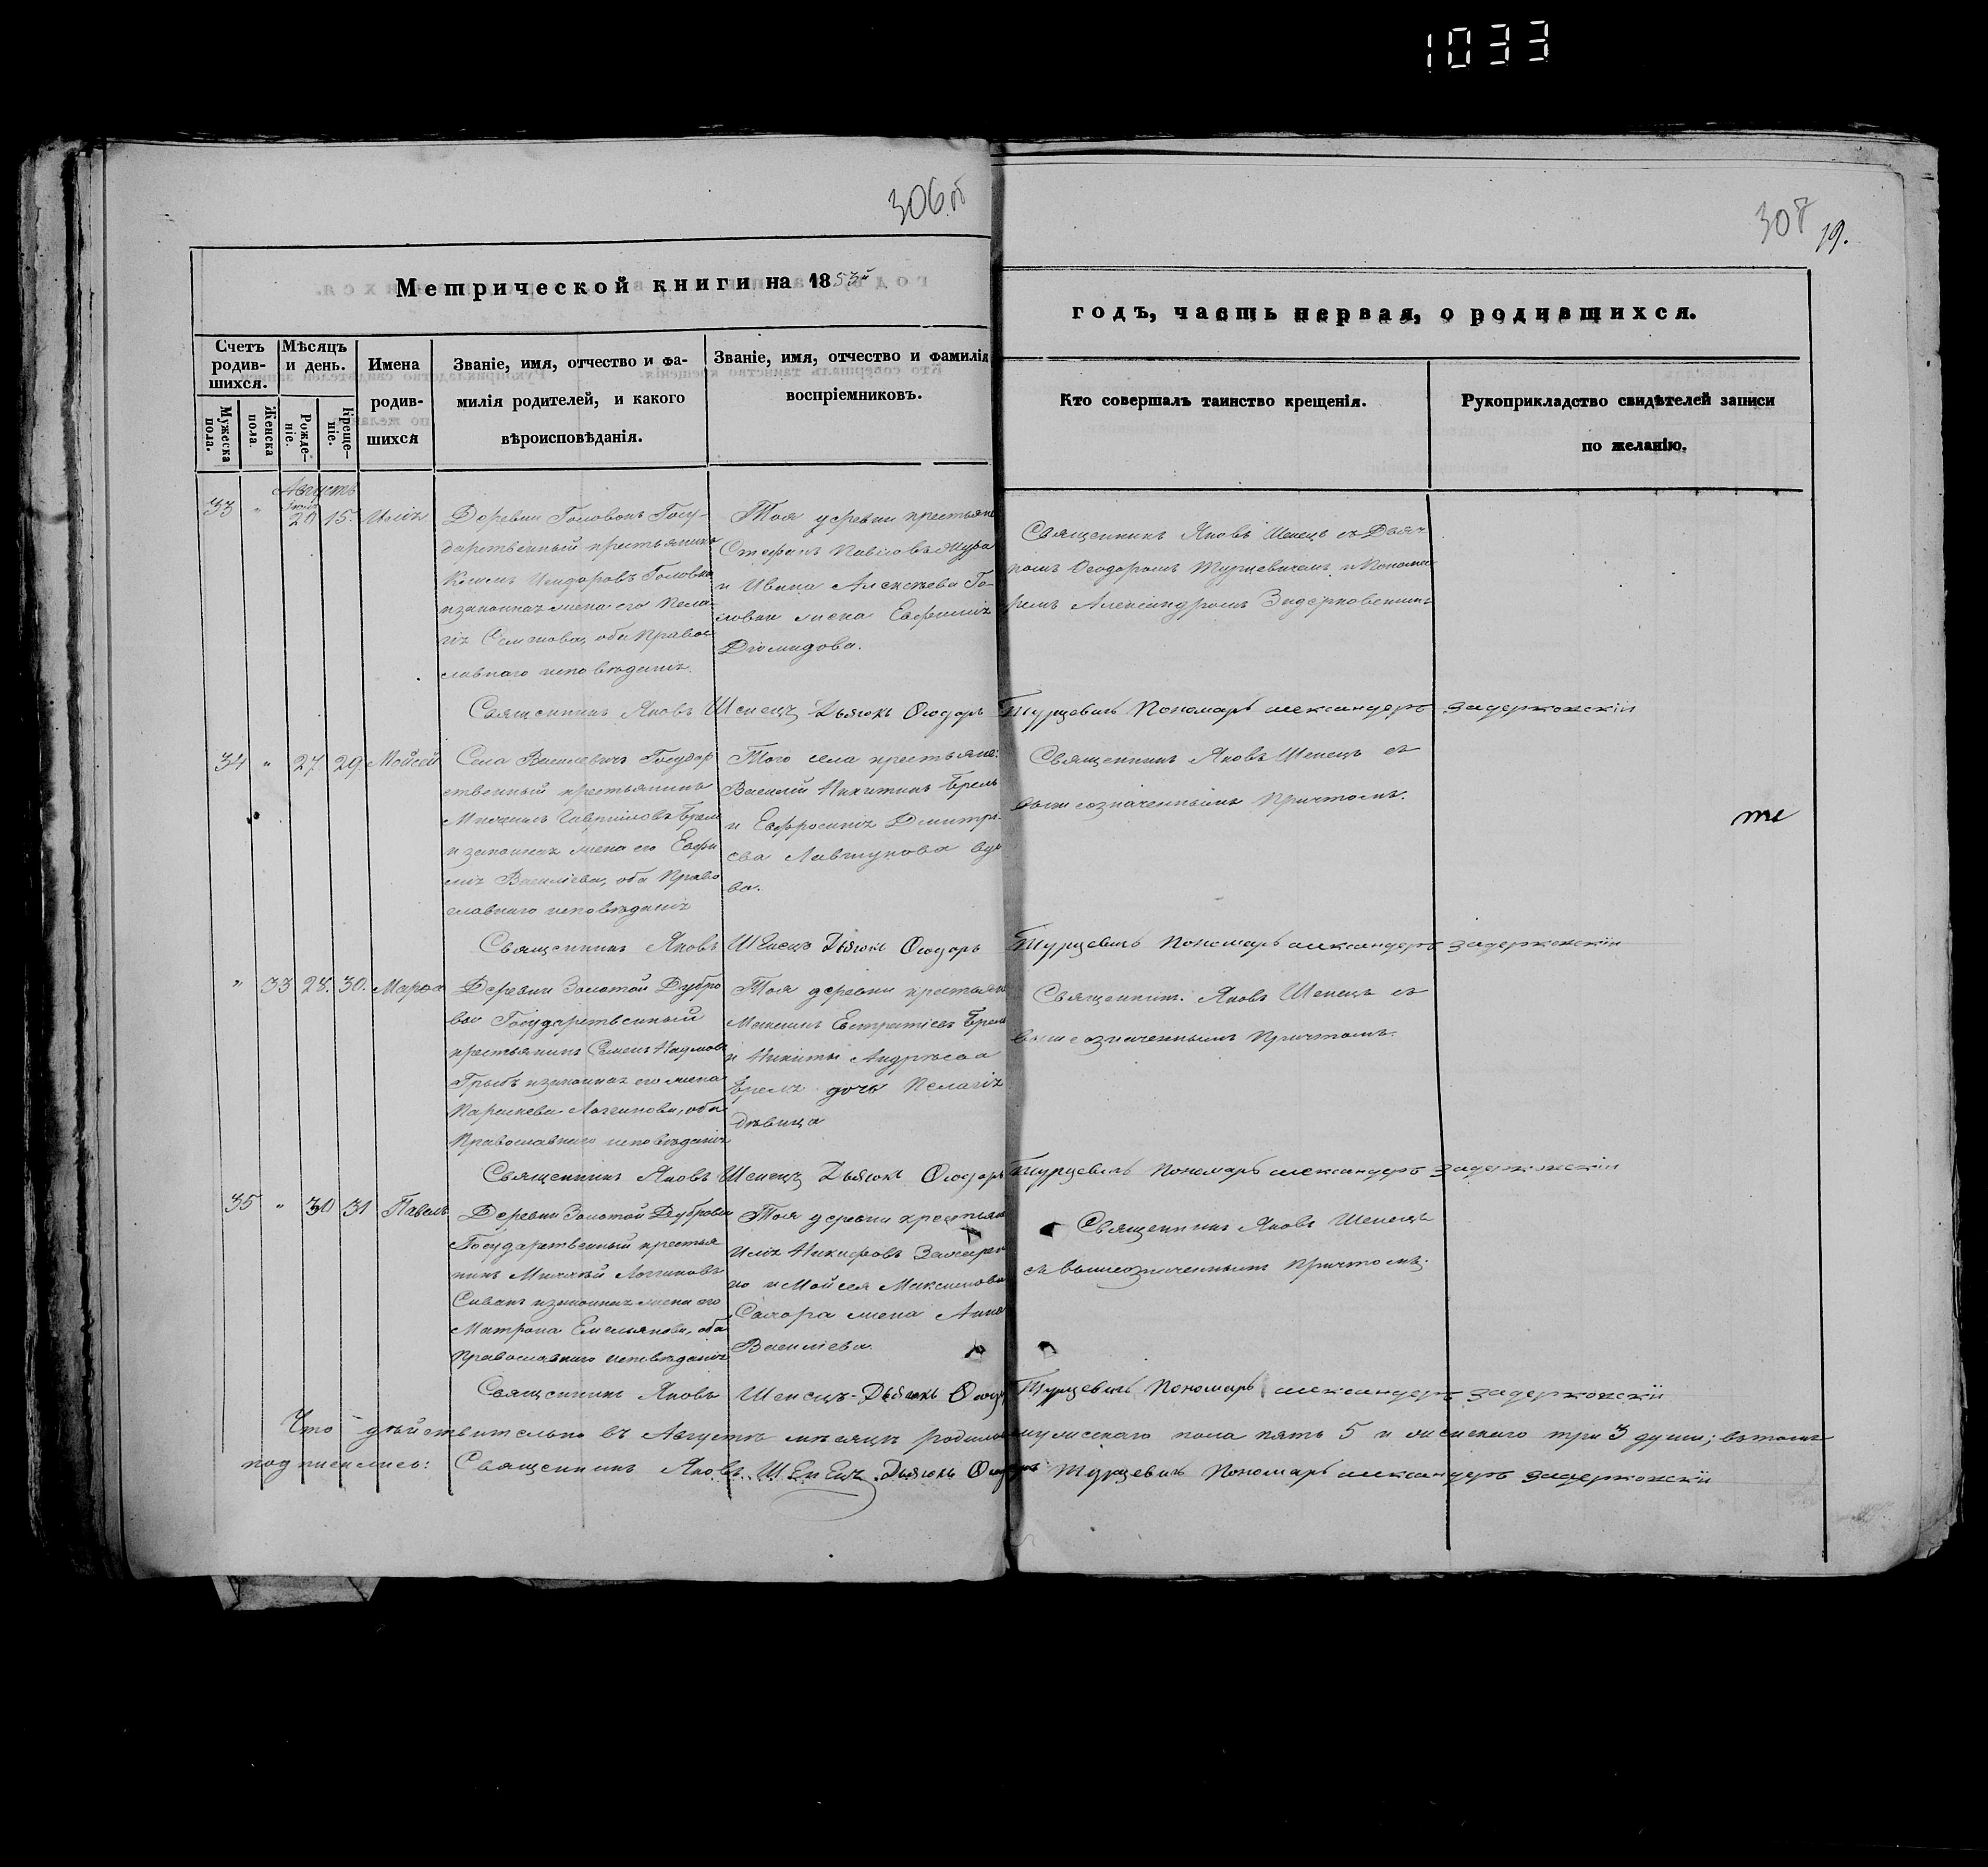 1033
306 об
307 19.
Метрической книги на 1853й
годъ, часть первая, о родившихся.
Счетъ родив-шихся.
Мѣсяцъ и день.
Имена родив-шихся
Званіе, имя, отчество и фа-
милія родителей, и какого
вѣроисповѣданія.
Званіе, имя, отчество и фамилія
воспріемниковъ.
Кто совершалъ таинство крещенія.
Рукоприкладство свидѣтелей записи
по желанію.
Мужеска пола.
Женска пола.
Рожде-ніе.
Креще-ніе.
Августъ
33 " 20 15. Илія
Деревни Головокъ Госу-
дарственный крестьянинъ
Климъ Исидоровъ Головко
и законная жена его Пела-
гія Семенова, оба Право-
славнаго исповѣданія.
Тоя деревни крестьяне
Стефанъ Павловъ
и Ивана Алексѣева Го-
ловки жена Евфимія
Діомидова.
Священникъ Яковъ Шепецъ съ Дьяч-
комъ Ѳеодоромъ Турцевичемъ и Понома-
ремъ Александромъ Задерковскимъ
Священникъ Яковъ Шепецъ Дьячокъ Ѳеодоръ Турцевичъ Пономарь александеръ задерковскій
34 " 27 29. Мойсей
Села Василевичъ Государ
ственный крестьянинъ
Михаилъ Гавріиловъ Брель
и законная жена его Евфи
мія Василіева, оба Право
славнаго исповѣданія
Того села крестьяне:
Василій Никитинъ Брель
и Евфросинія Димитрі-
ева Лавтукова вдо
ва.
Священникъ Яковъ Шепецъ съ
вышеозначеннымъ Причтомъ.
Священникъ Яковъ Шепецъ Дьячокъ Ѳеодоръ Турцевичъ Пономарь александеръ задерковскій
" 33 28. 30. Марѳа
Деревни Золотой Дубро
вы Государственный
крестьянинъ Семенъ Наумовъ
Грыбъ и законная его жена
Параскева Логвинова, оба
Православнаго исповѣданія
Тоя деревни крестьяне
Максимъ Евстратіевъ Брель
и Никиты Андреева
Бреля дочь Пелагія
дѣвица
Священникъ Яковъ Шепецъ съ
вышеозначеннымъ Причтомъ.
Священникъ Яковъ Шепецъ Дьячокъ Ѳеодоръ Турцевичъ Пономарь александеръ задерковскій
35 " 30 31 Павелъ
Деревни Золотой Дубровы
Государственный крестья
нинъ Михаѣй Логиновъ
Сивакъ и законная жена его
Матрона Емельянова, оба
Православнаго исповѣданія
Тоя деревни крестьяне
Илія Никифоровъ
и Мойсея Максимова
жена Анна
Василіева
Священникъ Яковъ Шепецъ
съ вышеозначеннымъ Причтомъ.
Священникъ Яковъ Шепецъ Дьячокъ Ѳеодоръ Турцевичъ Пономарь александеръ задерковскій
Что дѣйствительно въ Августѣ мѣсяцѣ родилось мужескаго пола пять 5 и женскаго три 3 души; въ томъ
подписались: Священникъ Яковъ Шепецъ Дьячокъ Ѳеодоръ Турцевичъ Пономарь александеръ задерковскій